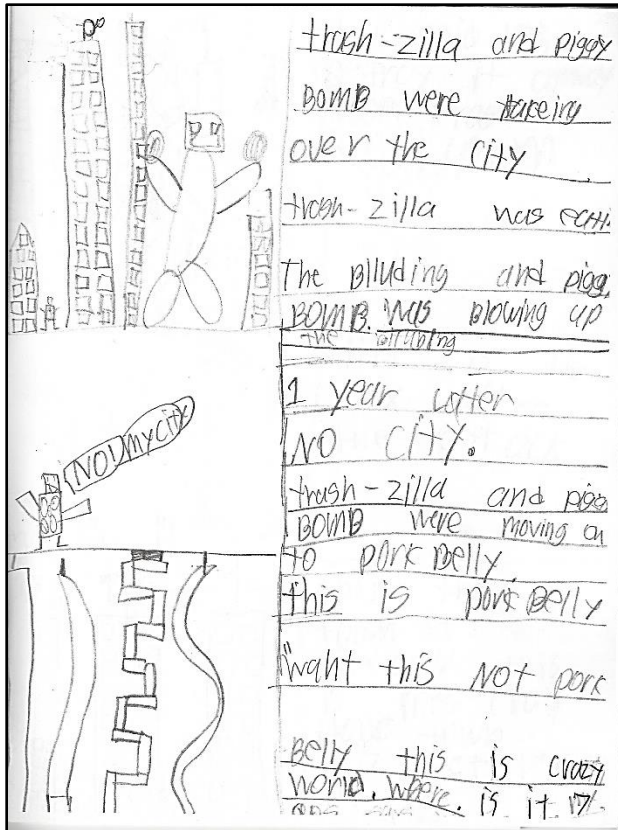 trash-zilla and piggy
BOMB were takeing
over the city.
trash-zilla was eatti
The Biluding and pigg
BOMB. was Blowing up
the Biluding
NO! my city
1 year latter
NO CITY.
trash-zilla and pigg
BOMB were moving on
to pork Belly.
this is pork Belly
"waht this NOT pork
Belly this is crazy
world. where. is it i?